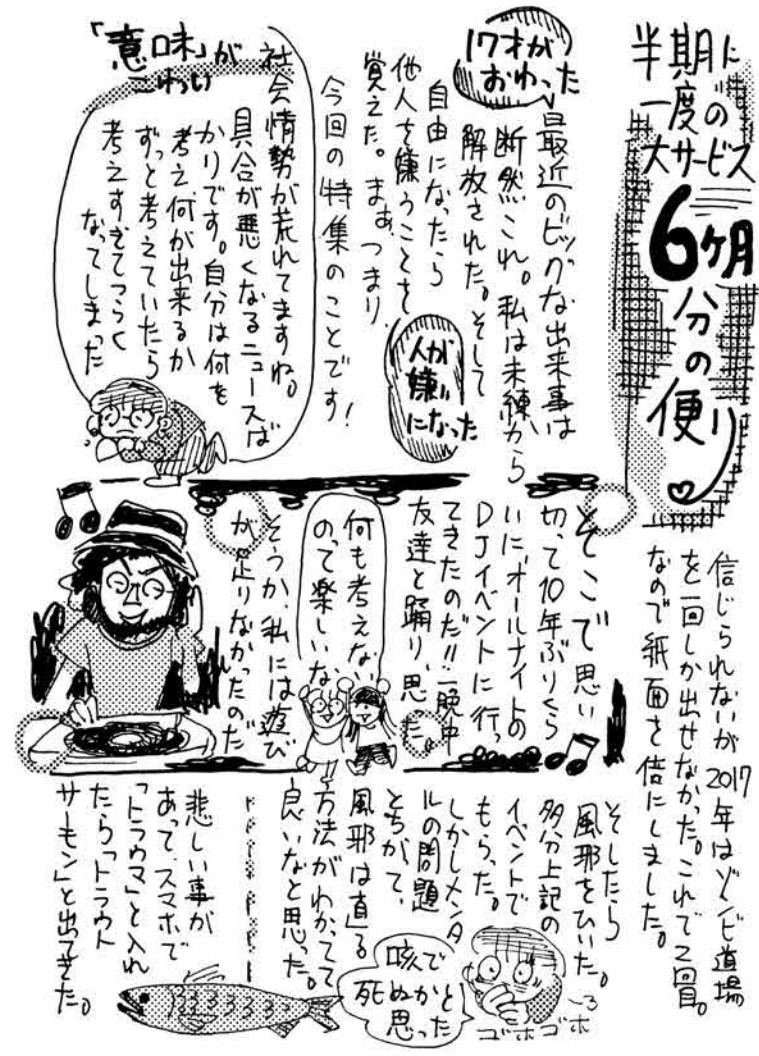 半期に
一度の
大サービス
6ヶ月
分の
便り
信じられないが2017年はゾンビ道場
を一回しか出せなかった。これで2回目。
なので紙面を倍にしました。
17才が
おわった
最近のビッグな出来事は
断然これ。私は未練から
解放された。そして
自由になったら
他人を嫌うことを
覚えた。まあ、つまり、
今回の特集のことです!
人が
嫌い
になった
「意味」が
こわい
社会情勢が荒れてますね。
具合が悪くなるニュースば
かりです。自分は何を
考え、何が出来るか
ずっと考えていたら
考えすぎてつらく
なってしまった
そこで思い
切って10年ぶりくら
いにオールナイトの
DJイベントに行っ
てきたのだ!!一晩中
友達と踊り、思った。
何も考えな
いのって楽しいな
そうか、私には遊び
が足りなかったのだ
そしたら
風邪をひいた。
多分上記の
イベントで
もらった。
しかしメンタ
ルの問題
とちがって、
風邪は直る
方法がわかってて
良いなと思った。
咳で
死ぬかと
思った
ゴホゴホ
悲しい事が
あって、スマホで
「トラウマ」と入れ
たら「トラウト
サーモン」と出てきた。